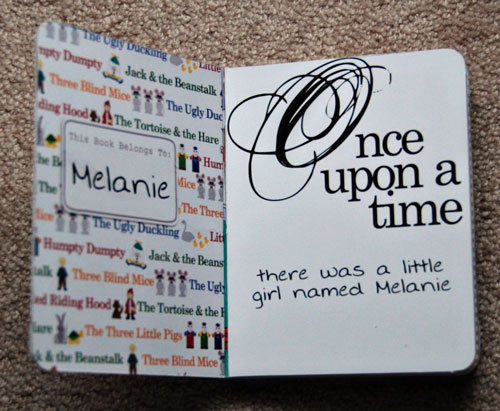 The Ugly Duckling Little
Humpty Dumpty Jack & the Beanstalk
Three Blind Mice The Ugly Duc
Riding Hood The Tortoise & the Hare
This Book Belongs To:
Hum
he B
Melanie
lice
The Three
lice The Ugly Duckling Litt
Humpty Dumpty Jack & the Beans
talk Three Blind Mice The Ugly
ed Riding Hood The Tortoise & the H
Hare The Three Little Pigs
k & the Beanstalk Three Blind Mice
Once
upon a
time
there was a little
girl named Melanie